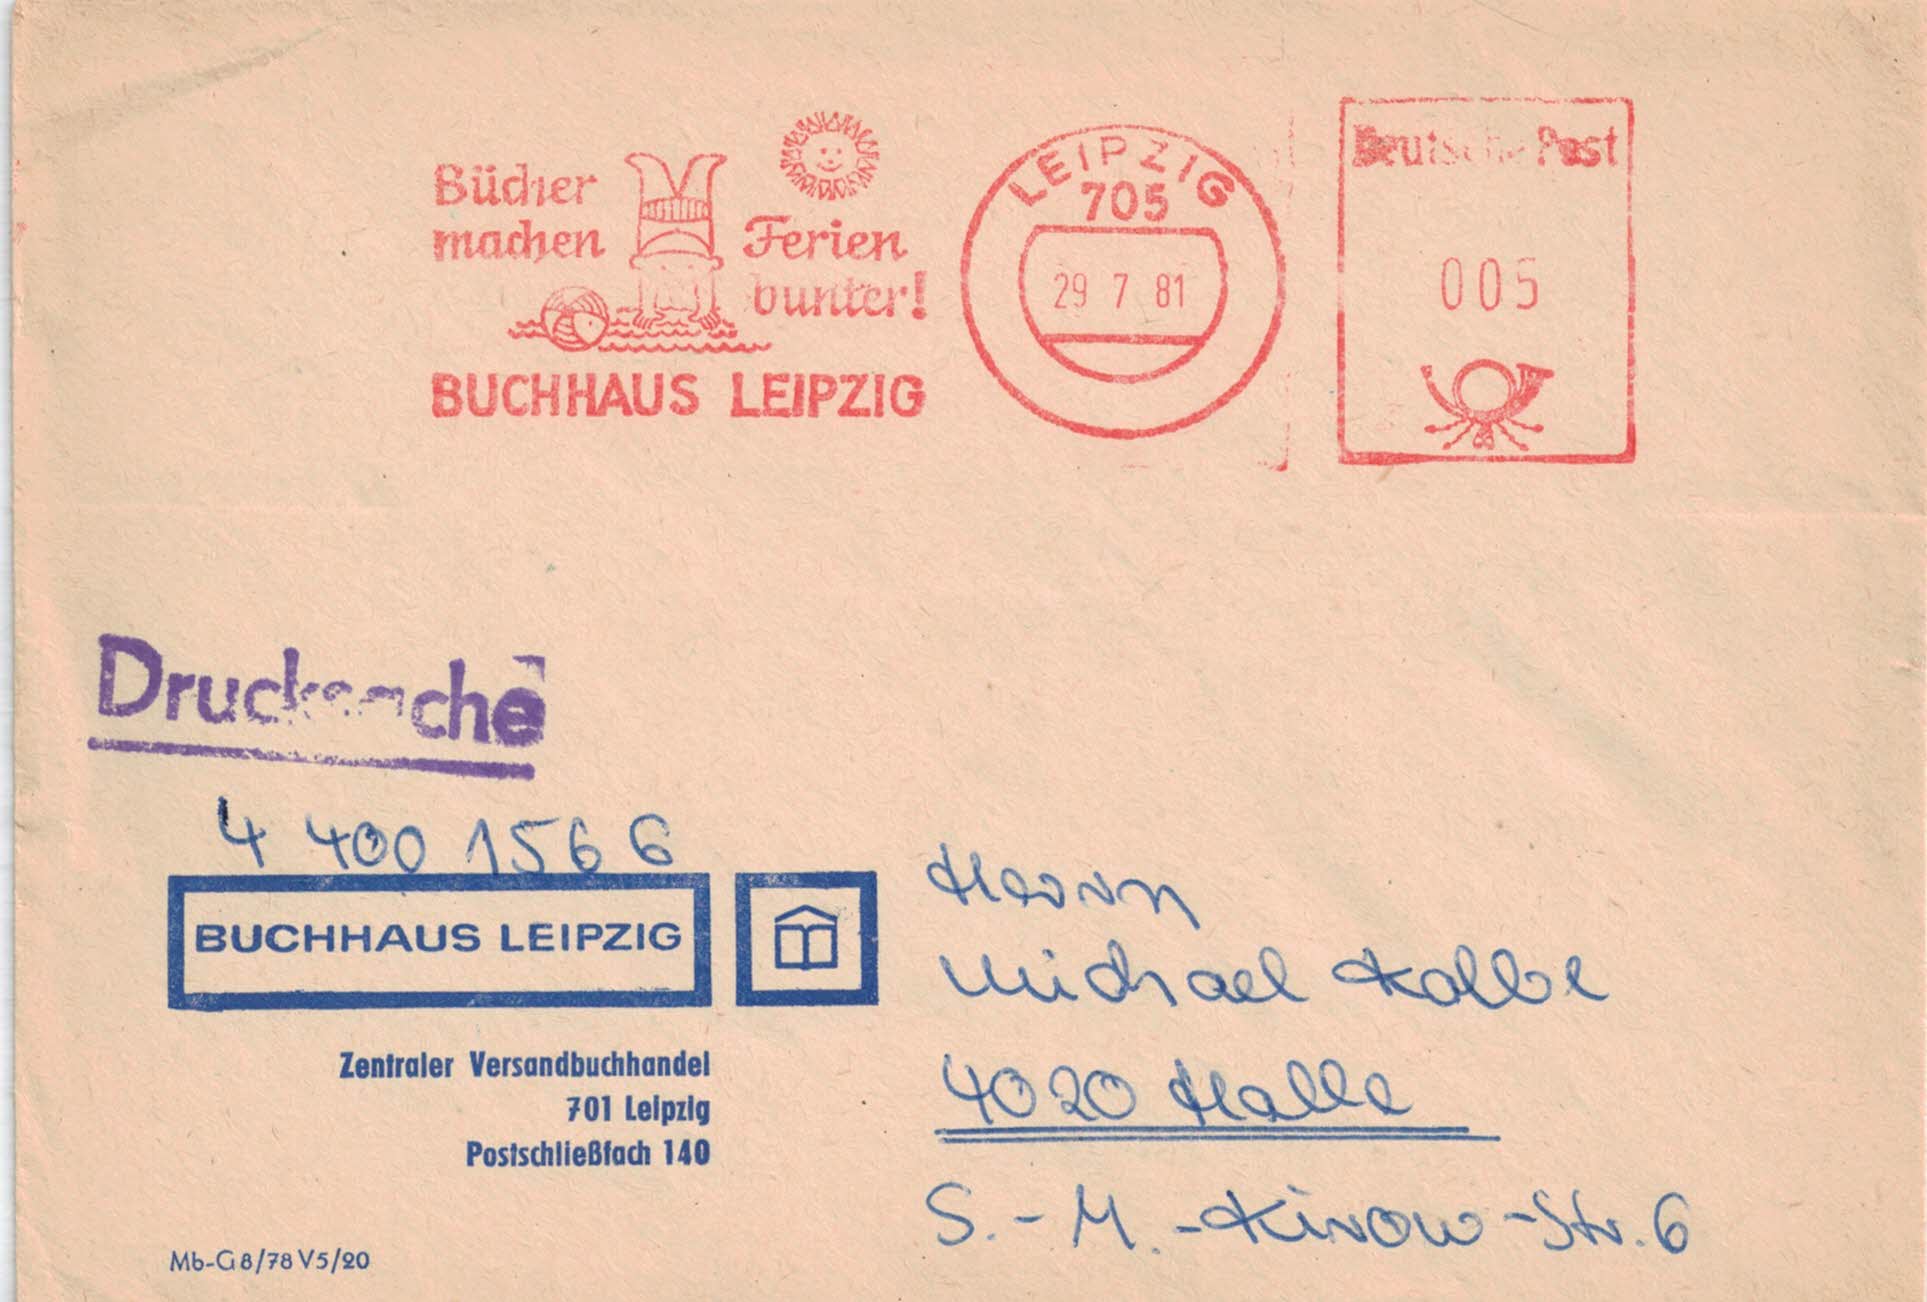 Bücher
machen Ferien
bunter!
BUCHHAUS LEIPZIG
LEIPZIG
705
29 7 81
Deutsche Post
005
Drucksache
4 400 1566
BUCHHAUS LEIPZIG
Zentraler Versandbuchhandel
701 Leipzig
Postschließfach 140
Mb-G 8/78 V 5/20
Herrn
Michael Kolbe
4020 Halle
S.-M.-Kirow-Str. 6